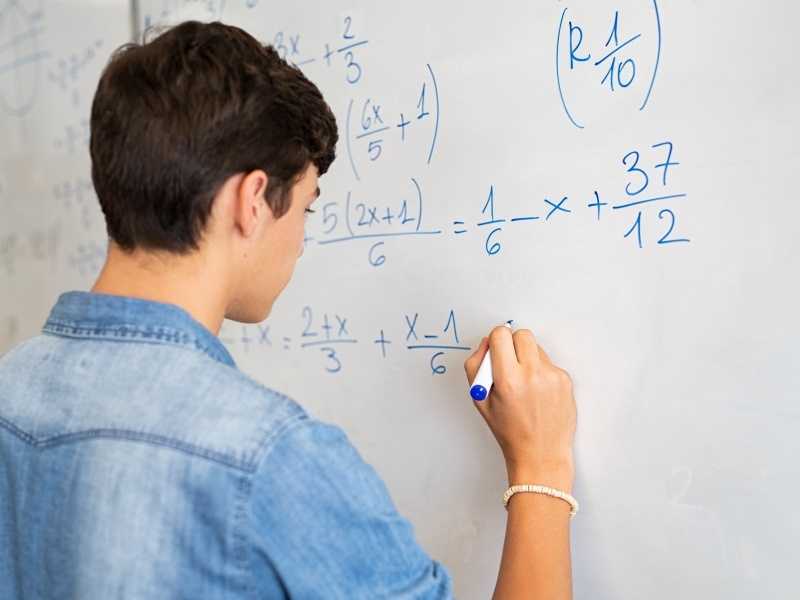 3x/— + 2/3
(R 1/10)
(6x/5 + 1)
- 5(2x+1)/6 = 1/6 - x + 37/12
+x = 2+x/3 + x-1/6